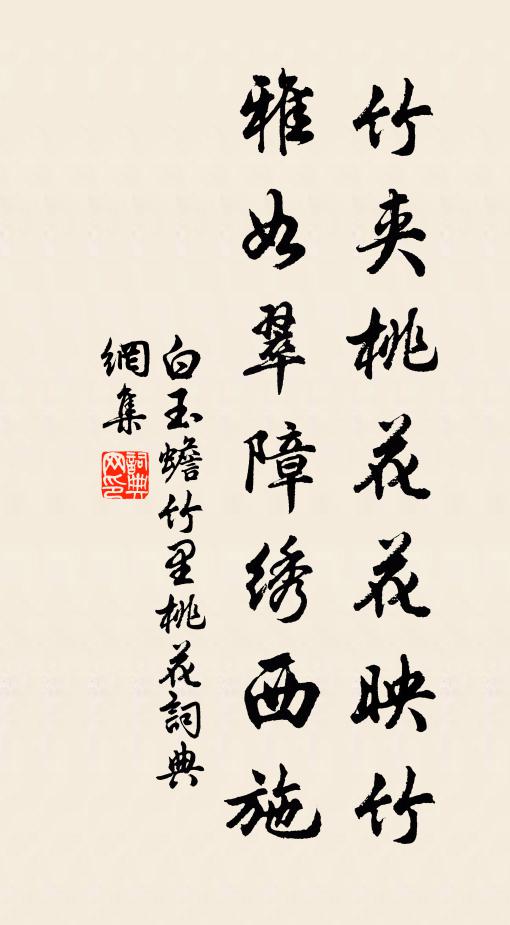 竹夹桃花花映竹
雅如翠障绣西施
白玉蟾竹里桃花詞典
網集
詞典
网印